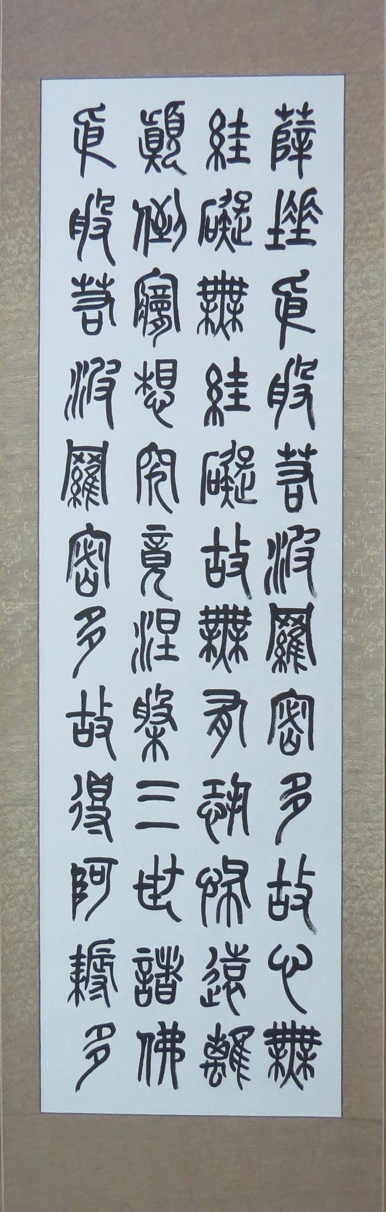 薩埵依般若波羅密多故心無
絓礙無絓礙故無有恐怖遠離
顛倒夢想究竟涅槃三世諸佛
依般若波羅密多故得阿耨多